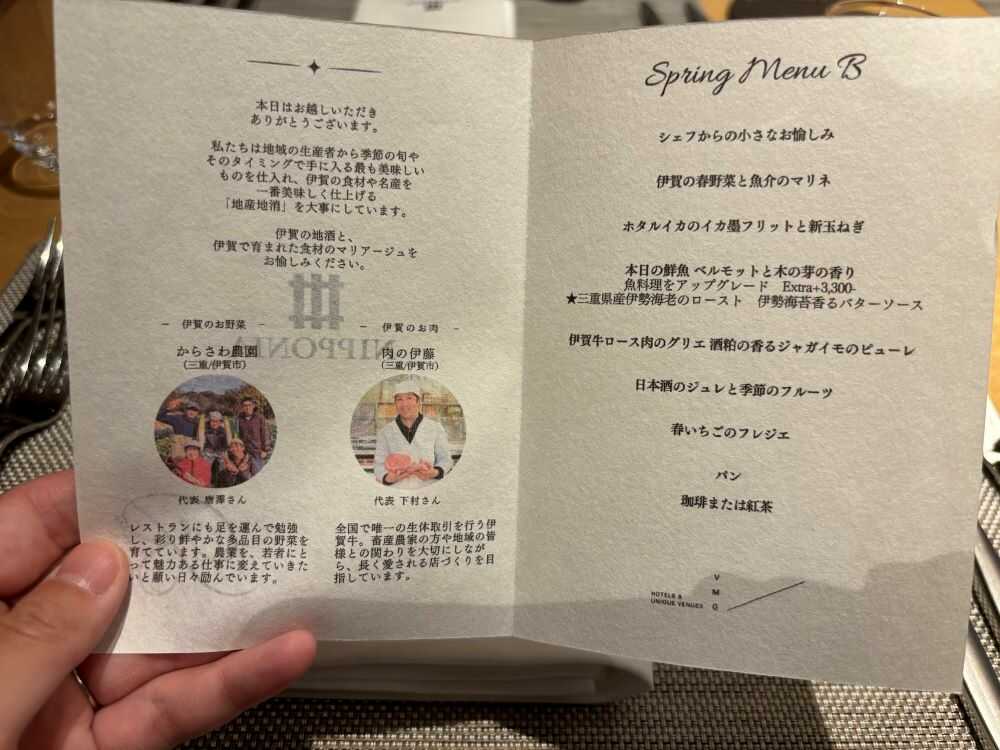 本日はお越しいただき
ありがとうございます。
私たちは地域の生産者から季節の旬や
そのタイミングで手に入る最も美味しい
ものを仕入れ、伊賀の食材や名産を
一番美味しく仕上げる
「地産地消」を大事にしています。
伊賀の地酒と、
伊賀で育まれた食材のマリアージュを
お愉しみください。
NIPPONIA
－ 伊賀のお野菜 －
からさわ農園
（三重/伊賀市）
代表 唐澤さん
レストランにも足を運んで勉強
し、彩り鮮やかな多品目の野菜を
育てています。農業を、若者にと
って魅力ある仕事に変えていきた
いと願い日々励んでいます。
－ 伊賀のお肉 －
肉の伊藤
（三重/伊賀市）
代表 下村さん
全国で唯一の生体取引を行う伊
賀牛。畜産農家の方や地域の皆
様との関わりを大切にしなが
ら、長く愛される店づくりを目
指しています。
Spring Menu B
シェフからの小さなお愉しみ
伊賀の春野菜と魚介のマリネ
ホタルイカのイカ墨フリットと新玉ねぎ
本日の鮮魚 ベルモットと木の芽の香り
魚料理をアップグレード Extra+3,300-
★三重県産伊勢海老のロースト 伊勢海苔香るバターソース
伊賀牛ロース肉のグリエ 酒粕の香るジャガイモのピューレ
日本酒のジュレと季節のフルーツ
春いちごのフレジエ
パン
珈琲または紅茶
HOTELS &
UNIQUE VENUES
V
M
G